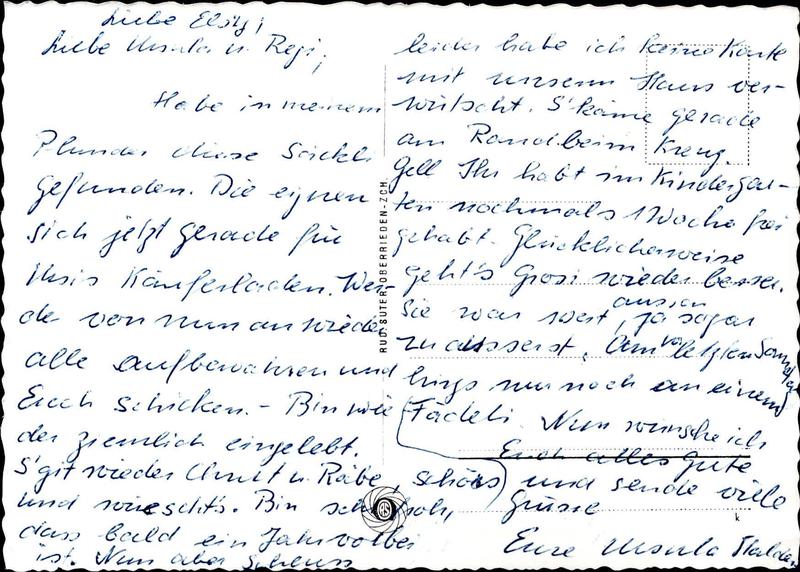 Liebe Elsy,
Liebe Ursula u. Regi,
Habe in meinem
Plunder diese Säckli
gefunden. Die eignen
sich jetzt gerade für
Käuferladen. Wer-
de von nun an wieder
alle aufbewahren und
Euch schicken. - Bin wie
der ziemlich eingelebt.
S'git wieder u. Räbe,
und Bin schon froh,
dass bald ein Jahr vorbei
ist. Nun aber Schluss
RUD. SUTER, OBERRIEDEN-ZCH.
leider habe ich keine Karte
mit unserm Haus ver-
wütscht. S'käme gerade
am Rand beim Kreuz.
Gell Ihr habt im Kindergar-
ten nochmals 1 Woche frei
gehabt. Glücklicherweise
geht's Grosi wieder besser.
Sie war weit aussen, ja sogar
zu äusserst. Am letzten
hings nur noch an einem
Fädeli. Nun wünsche ich
Euch alles Gute
und sende viele
schöne Grüsse
Eure Ursula
k